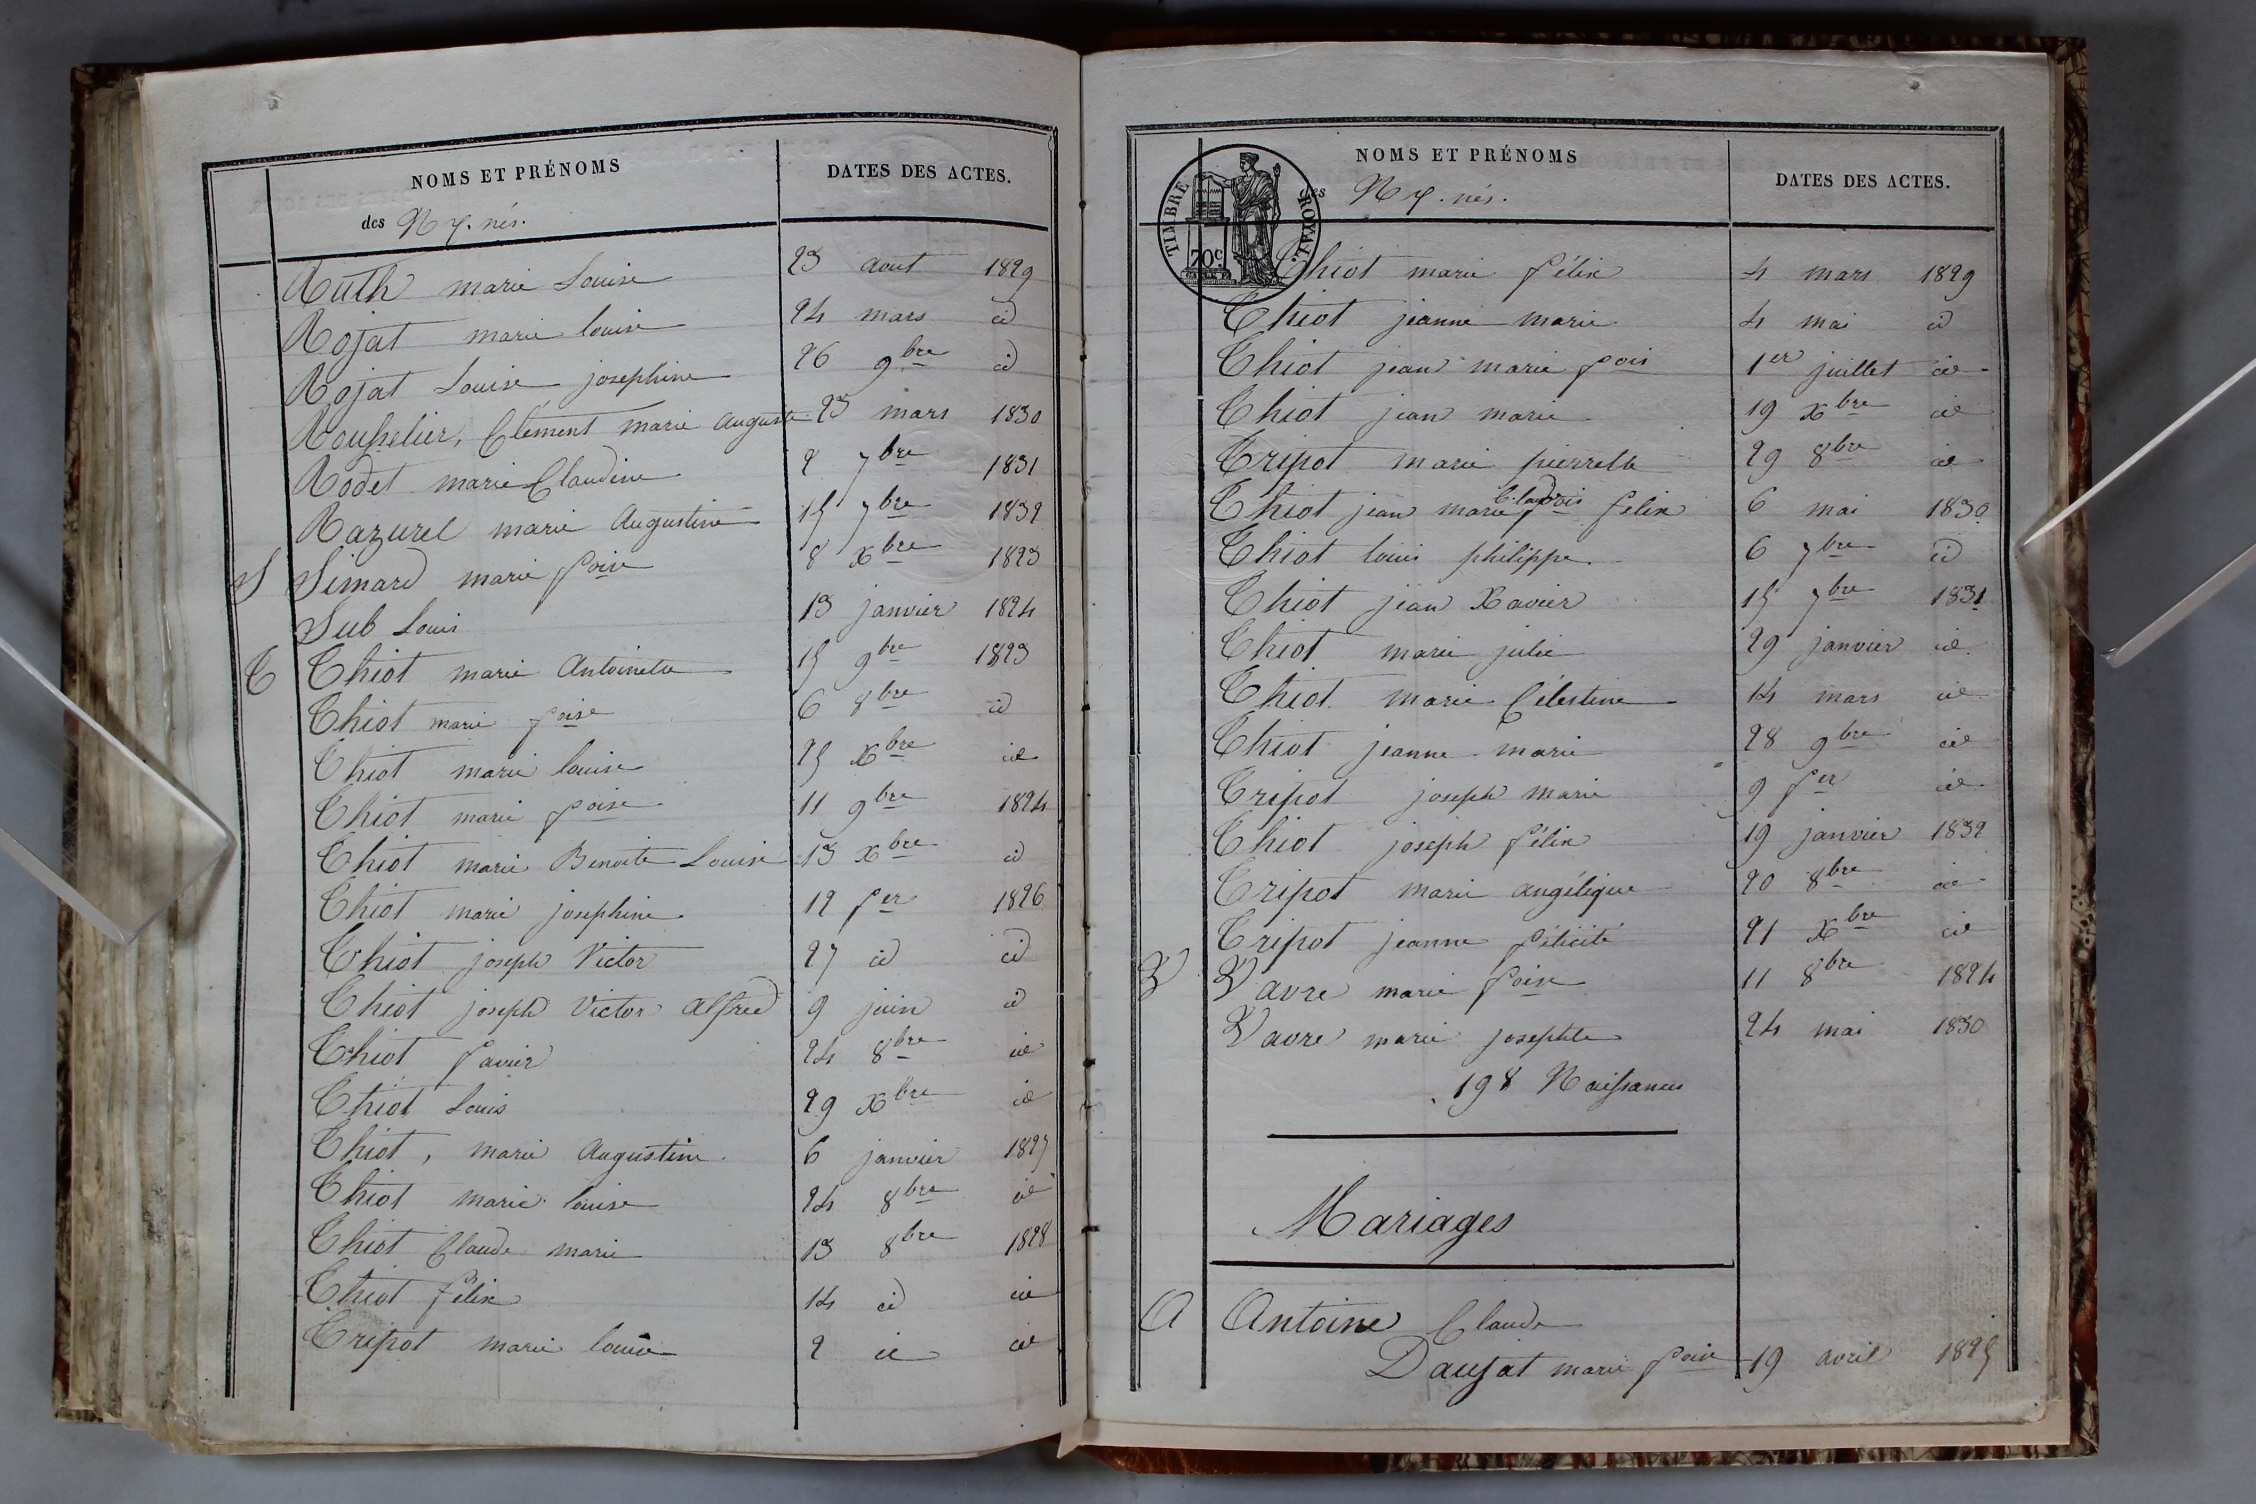 NOMS ET PRÉNOMS
DATES DES ACTES.
des N x. nés.
Ruth marie Louise 23 aout 1829
Rojat marie louise 24 mars id
Rojat Louise josephine 26 9bre id
Rousselier, Clément marie auguste 23 mars 1830
Rodet marie Claudine 2 7bre 1831
Razurel marie Augustine 15 7bre 1832
S Simard marie foise 8 Xbre 1823
Sub Louis 13 janvier 1824
T Thiot marie Antoinette 15 9bre 1823
Thiot marie foise 6 8bre id
Thiot marie louise 25 Xbre id
Thiot marie foise 11 9bre 1824
Thiot marie Benoite Louise 13 Xbre id
Thiot marie josephine 12 fer 1826
Thiot joseph Victor 27 id id
Thiot joseph Victor alfred 9 juin id
Thiot 24 8bre id
Thiot Louis 29 Xbre id
Thiot, marie Augustine 6 janvier 1827
Thiot marie louise 24 8bre id
Thiot Claude marie 13 8bre 1828
Thiot félix 14 id id
Tripot marie louise 2 id id
NOMS ET PRÉNOMS
DATES DES ACTES.
des N x. nés.
TIMBRE ROYAL
70c.
Thiot marie félix 4 mars 1829
Thiot jeanne marie 4 mai id
Thiot jean marie fois 1er juillet id
Thiot jean marie 19 Xbre id
Tripot marie pierrette 29 8bre id
Thiot jean marie fois felix 6 mai 1830
Thiot louis philippe 6 7bre id
Thiot jean Xavier 15 7bre 1831
Thiot marie julie 29 janvier id
Thiot marie Célestine 14 mars id
Thiot jeanne marie 28 9bre id
Tripot joseph marie 9 fer id
Thiot joseph félix 19 janvier 1832
Tripot marie angélique 20 8bre id
Tripot jeanne félicité 21 Xbre id
V Vavre marie foise 11 8bre 1824
Vavre marie josephte 24 mai 1830
198 Naissances
Mariages
A Antoine Claude
Daujat marie foise 19 avril 1825